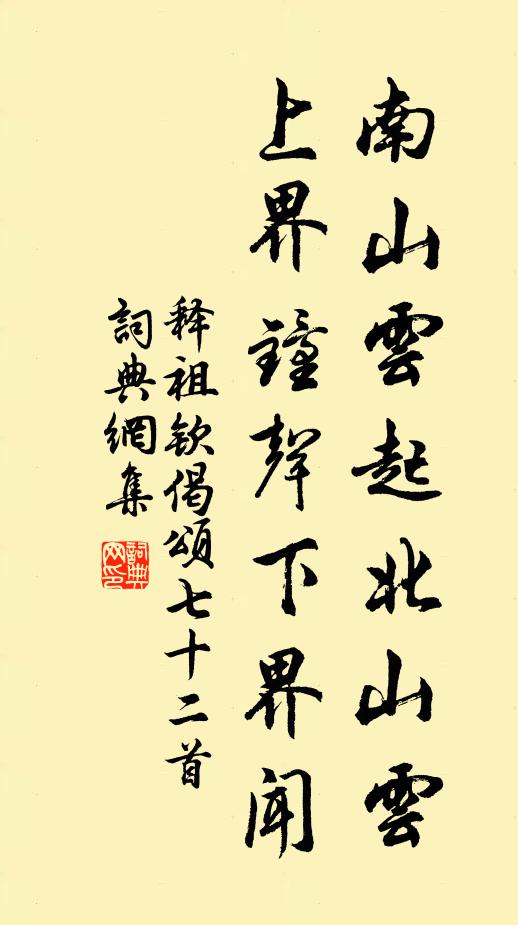 南山雲起北山雲
上界鐘聲下界聞
释祖钦偈頌七十二首
詞典網集
詞典网印